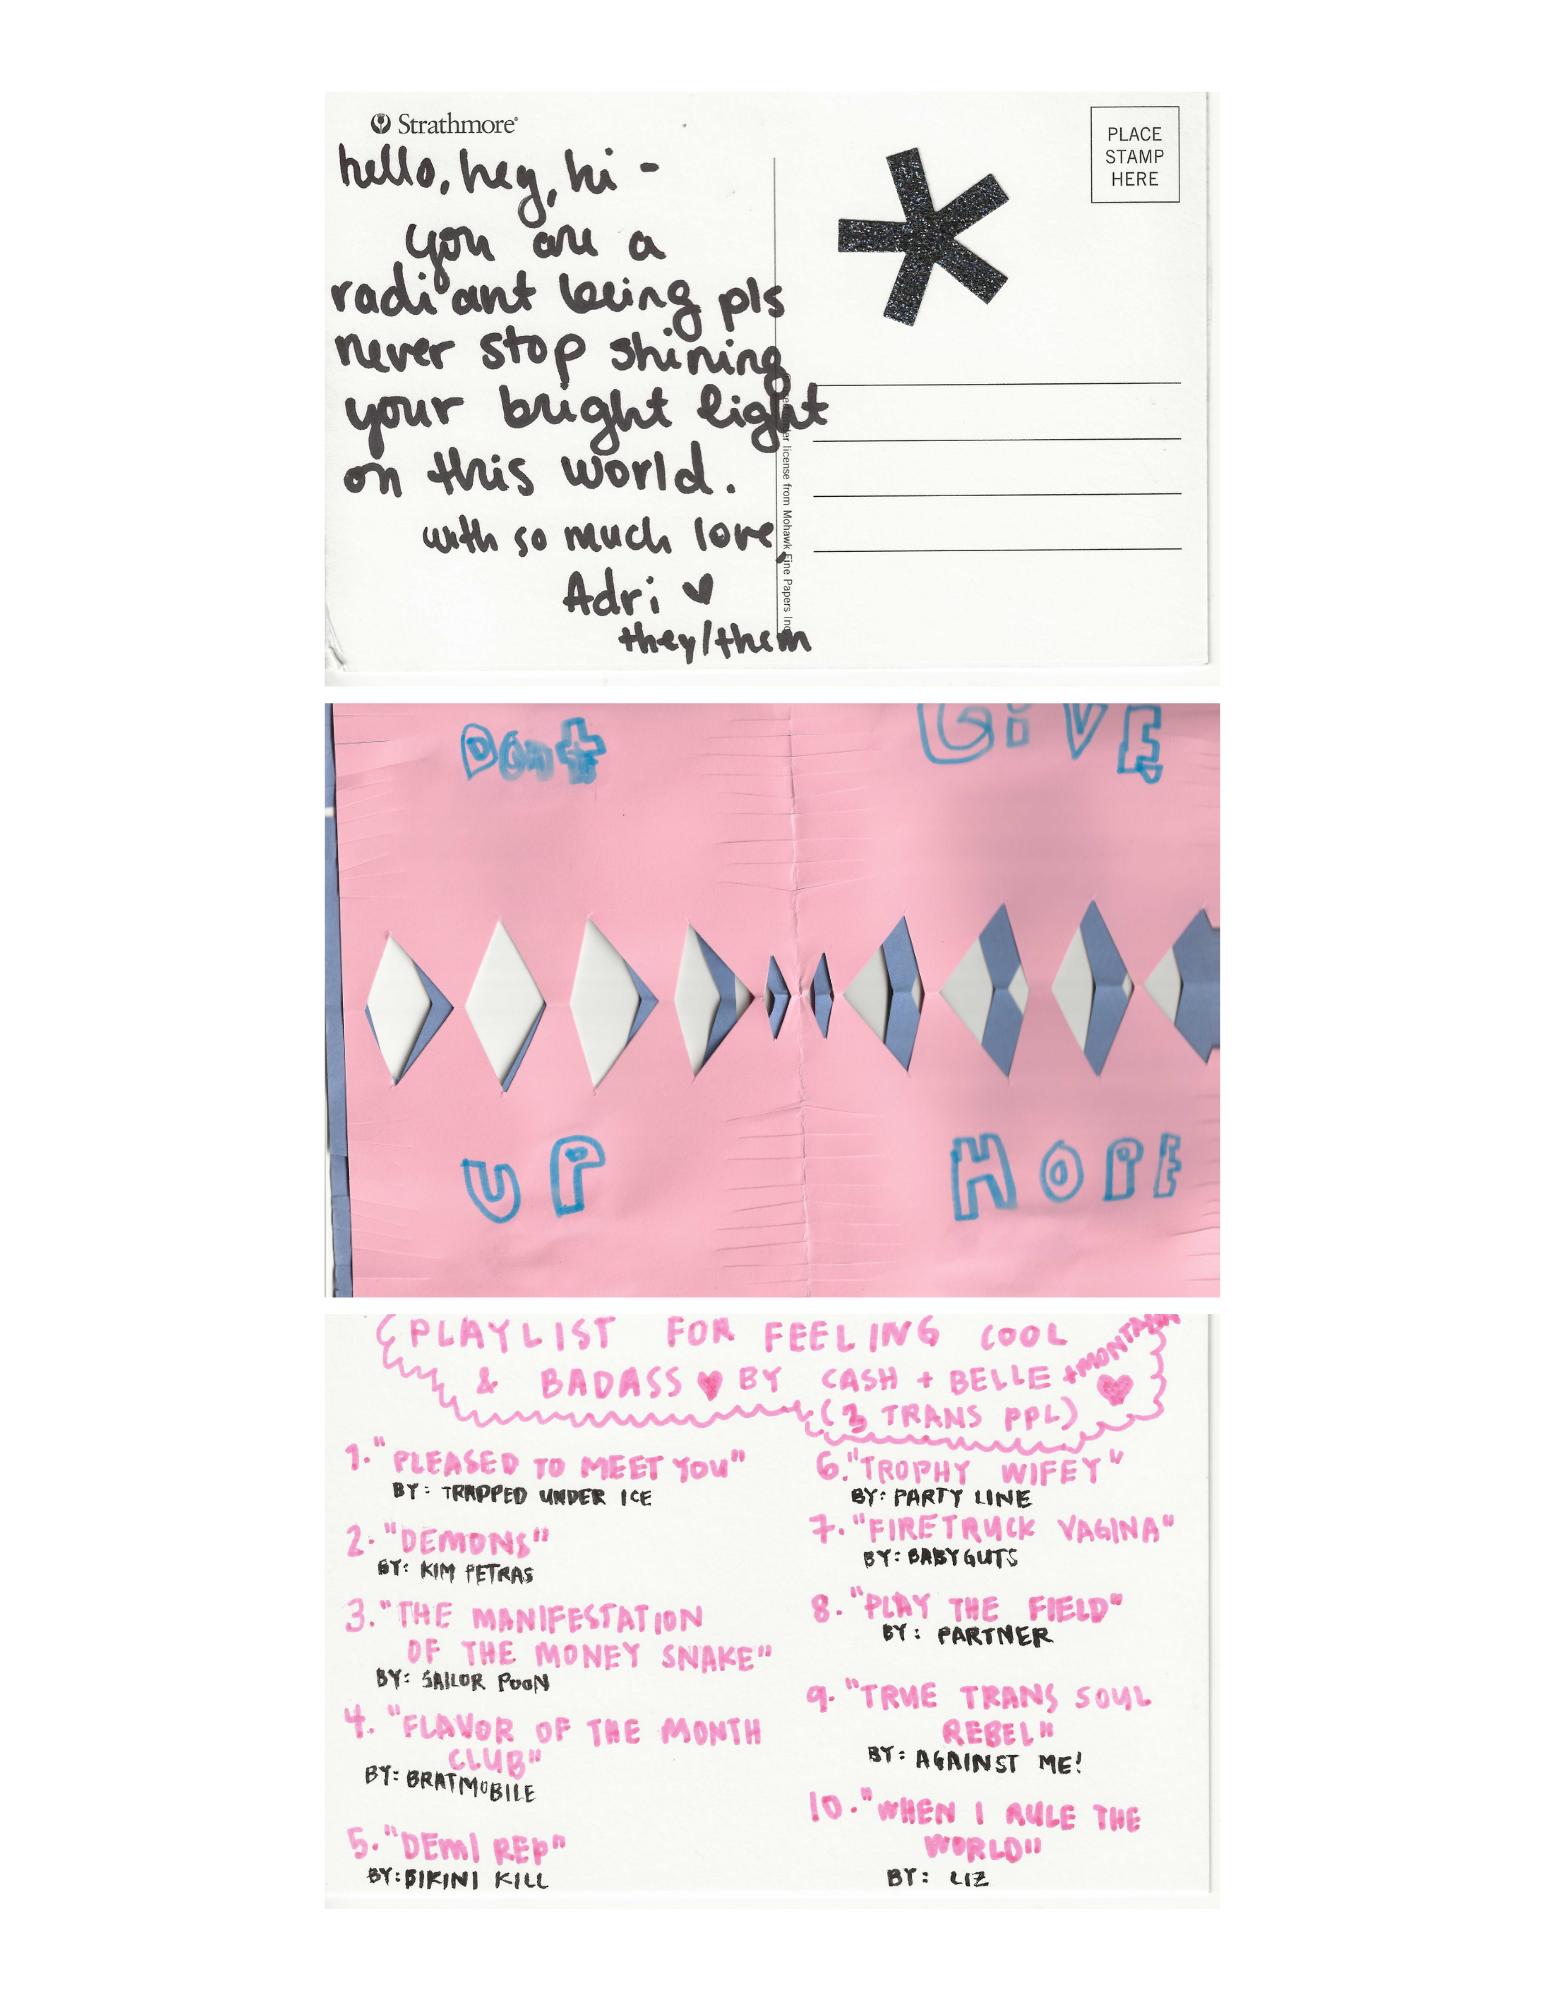 Strathmore
PLACE
STAMP
HERE
hello, hey, hi -
you are a
radiant being pls
never stop shining
your bright light
on this world.
with so much love,
Adri ♥
they/them
license from Mohawk Fine Papers Inc
Don't GIVE
UP HOPE
PLAYLIST FOR FEELING COOL
& BADASS ♥ BY CASH + BELLE + MONTANA
(3 TRANS PPL)
1. "PLEASED TO MEET YOU"
BY: TRAPPED UNDER ICE
2. "DEMONS"
BY: KIM PETRAS
3. "THE MANIFESTATION
OF THE MONEY SNAKE"
BY: SAILOR POON
4. "FLAVOR OF THE MONTH
CLUB"
BY: BRATMOBILE
5. "DEMI REP"
BY: BIKINI KILL
6. "TROPHY WIFEY"
BY: PARTY LINE
7. "FIRETRUCK VAGINA"
BY: BABYGUTS
8. "PLAY THE FIELD"
BY: PARTNER
9. "TRUE TRANS SOUL
REBEL"
BY: AGAINST ME!
10. "WHEN I RULE THE
WORLD"
BY: LIZ